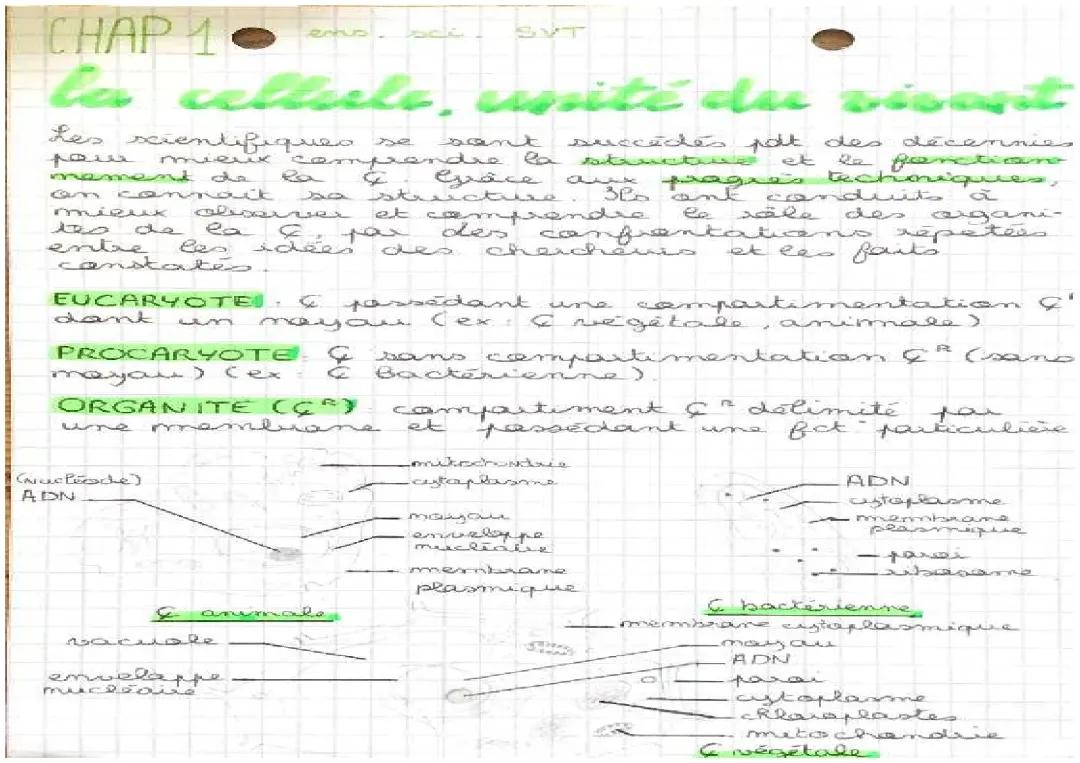 CHAP 1
ens. sci. SVT
la cellule, unité du vivant
Les scientifiques se sont succédés pdt des décennies
pour mieux comprendre la structure et le fonction-
nement de la Ç. Grâce aux progrès techniques,
on connait sa structure. Ils ont conduits à
mieux observer et comprendre le rôle des organi-
tes de la Ç, par des confrontations répétées
entre les idées des chercheurs et les faits
constatés.
EUCARYOTE : Ç possédant une compartimentation Ç
dont un noyau (ex : Ç végétale, animale)
PROCARYOTE : Ç sans compartimentation Ç^R (sans
noyau) (ex : Ç Bactérienne)
ORGANITE (Ç^R) : compartiment Ç^R délimité par
une membrane et possédant une fct° particulière
(nucléode)
ADN
mitochondrie
cytoplasme
noyau
enveloppe
nucléaire
membrane
plasmique
Ç animale
ADN
cytoplasme
membrane
plasmique
paroi
ribosome
Ç bactérienne
vacuole
enveloppe
nucléaire
membrane cytoplasmique
noyau
ADN
paroi
cytoplasme
chloroplastes
mitochondrie
Ç végétale